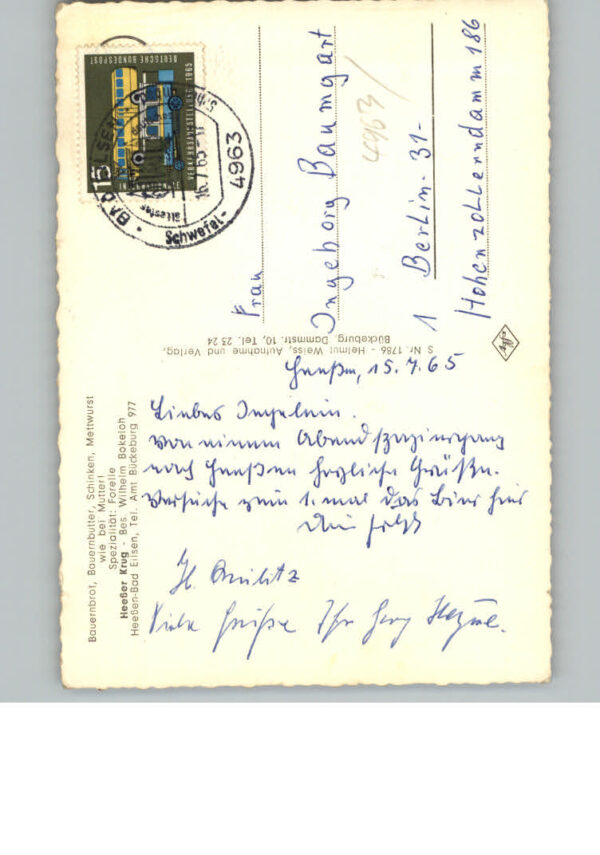 Bauernbrot, Bauernbutter, Schinken, Mettwurst
wie bei Mutter!
Spezialität: Forelle
Heeßer Krug - Bes. Wilhelm Bokeloh
Heeßen-Bad Eilsen, Tel. Amt Bückeburg 977
Heeßen, 15.7.65
Liebes Ingelein.
von einem Abendspaziergang
nach Heeßen herzliche Grüße.
Versuche zum 1. mal das Bier hier
Dein
Viele Grüße Ihr
S Nr. 1786 - Helmut Weiss, Aufnahme und Verlag,
Bückeburg, Dammstr. 10, Tel. 23 24
Frau
Ingeborg Baumgart
4963/
1 Berlin-31-
Hohenzollerndamm 186
DEUTSCHE BUNDESPOST
VERKEHRSAUSSTELLUNG 1965
15
BAD EILSEN
16.7.65
4963
ältestes
Schwefel-